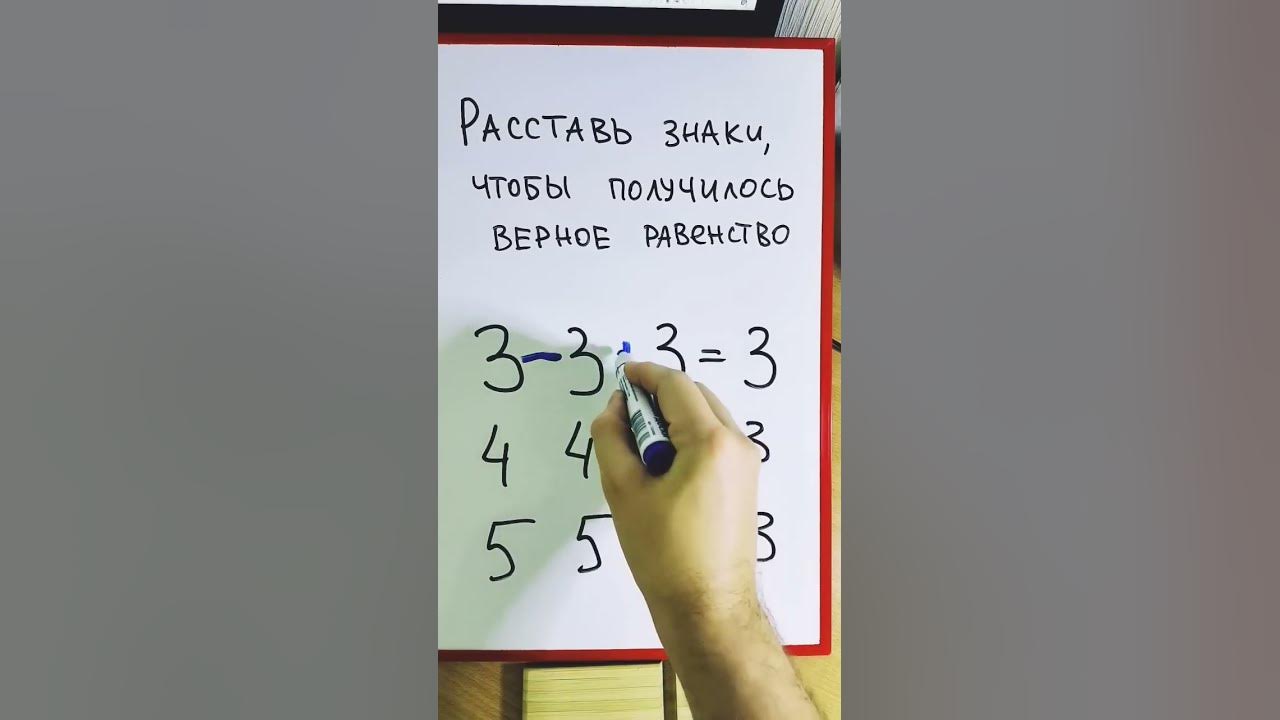 Расставь знаки,
чтобы получилось
верное равенство
3 - 3 + 3 = 3
4 4 3
5 5 3